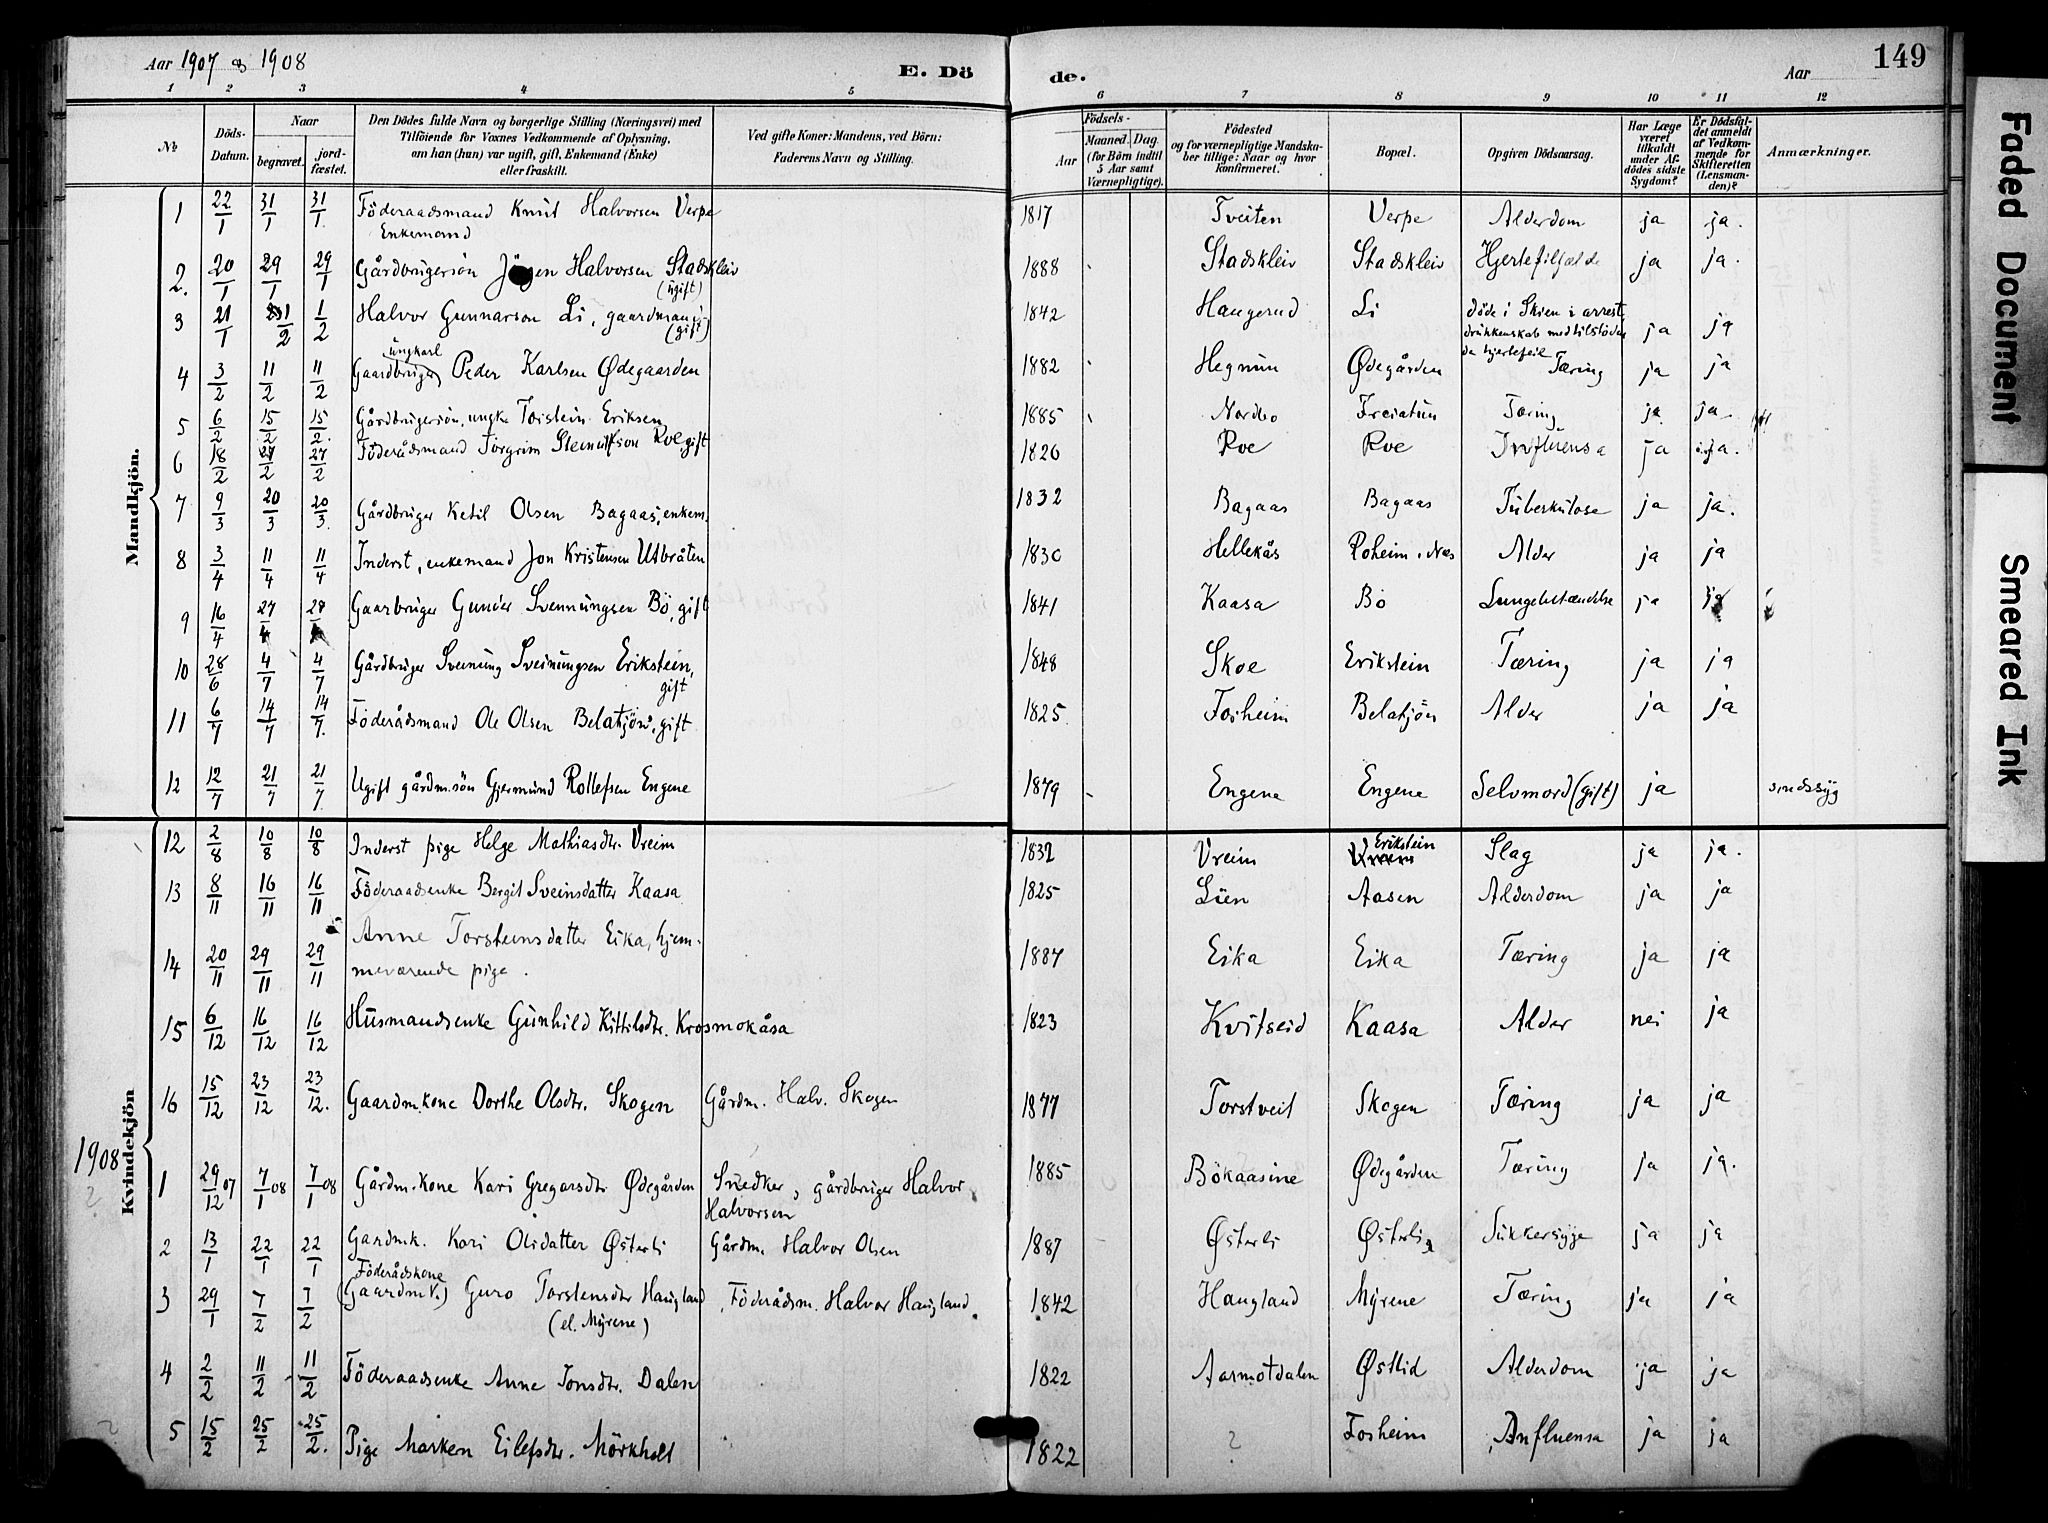 Aar 1907 & 1908
E. Dö
de.
Aar
149
1 2 3 4 5 6 7 8 9 10 11 12
№
Döds-Datum.
Naar
begravet.
jordfæstet.
Den Dödes fulde Navn og borgerlige Stilling (Næringsvei) med
Tilföiende for Voxnes Vedkommende af Oplysning,
om han (hun) var ugift, gift, Enkemand (Enke)
eller fraskilt.
Ved gifte Koner: Mandens, ved Börn:
Faderens Navn og Stilling.
Födsels-
Aar
Maaned. Dag.
(for Börn indtil
5 Aar samt
Værnepligtige).
Födested
og for værnepligtige Mandska-
ber tillige: Naar og hvor
konfirmeret.
Bopæl.
Opgiven Dödsaarsag.
Har Læge
været
tilkaldt
under Af-
dödes sidste
Sygdom?
Er Dödsfal-
det anmeldt
af Vedkom-
mende for
Skifteretten
(Lensman-
den)?
Anmærkninger.
Mandkjön.
1 22/1 31/1 31/1 Föderaadsmand Knut Halvorsen Verpe 1817 Tveiten Verpe Alderdom ja ja.
Enkemand
2. 20/1 29/1 29/1 Gårdbrugersön Halvorsen Stadskleiv 1888 Stadskleiv Stadskleiv ja ja.
(ugift)
3 21/1 1/2 1/2 Halvor Gunnarson Li, gaardmand 1842 Haugerud Li döde i Skien i arrest,
(gift) drukkenskab ja ja
ungkarl
4 3/2 11/2 11/2 Gaardbruger Peder Karlsen Ødegaarden 1882 Hegnun Ødegården Tæring ja ja
5 6/2 15/2 15/2. Gårdbrugersön, ungk. Torstein Eriksen 1885 Nordbo Tæring ja ja
6 18/2 27/2 27/2 Föderådsmand Torgrim Roe gift 1820 Roe Roe Influensa ja ja.
7 9/3 20/3 20/3. Gårdbruger Ketil Olsen Bagaas, enkem. 1832 Bagaas Bagaas Tuberkulose ja ja.
8 3/4 11/4 11/4 Inderst, enkemand Jon Kristensen Utbråten 1830 Hellekås Roheim i Nes Alder ja ja
9 16/4 27/4 28 Gaarbruger Gunder Svennungsen Bö, gift 1841 Kaasa Bö Lungebetændelse ja ja
10 28/6 4/7 4/7 Gårdbruger Sveinung Sveinungsen Erikstein, 1848 Skoe Erikstein Tæring ja ja
gift
11 6/7 14/7 14/7. Föderådsmand Ole Olsen Belatjönn, gift 1825 Forheim Belatjön Alder ja ja
12 12/7 21/7 21/7. Ugift gårdm.sön Gjermund Rollefsen Engene 1879 Engene Engene Selvmord (gift) ja sindssyg
Kvindekjön
12 2/8 10/8 10/8 Inderst pige Helge Mathiasdtr. Vreim 1832 Vreim Erikstein Slag ja ja.
13 8/11 16/11 16/11 Föderaadsenke Bergit Sveinsdatter Kaasa 1825 Lien Aasen Alderdom ja ja
14 20/11 29/11 29/11 Anne Torsteinsdatter Eika, hjem- 1887 Eika Eika Tæring ja ja
meværende pige.
15 6/12 16/12 16/12 Husmandsenke Gunhild Kittilsdtr. Krosmokåsa 1823 Kvitseid Kaasa Alder nei ja
16 15/12 23/12 23/12. Gaardm.kone Dorthe Olsdtr. Skogen Gårdm. Halv. Skogen 1877 Torstveit Skogen Tæring ja ja
1908
?
1 29/12 07 7/1 08 7/1 08 Gårdm.kone Kari Gregarsdtr Ødegården Snedker, gårdbruger Halvor 1885 Bökaasine Ødegården Tæring ja ja.
Halvorsen
2 13/1 22/1 22/1 Gardmk. Kari Olsdatter Østerli Gårdm. Halvor Olsen 1887 Østerli Østerli Sukkersyge ja ja
Föderådskone
3 29/1 7/2 7/2 (Gaardmk.) Guro Torstensdtr Haugland Föderådsm. Halvor Haugland. 1842 Haugland Myrene Tæring ja ja
(el. Myrene)
4 2/2 11/2 11/2 Föderaadsenke Anne Jonsdtr. Dalen 1822 Aarmotdalen Østlid Alderdom ja ja
5 15/2 25/2 25/2. Pige Marken Eilefsdtr. Mörkholt 1822 ? Forheim Influensa ja ja
Faded Document
Smeared Ink